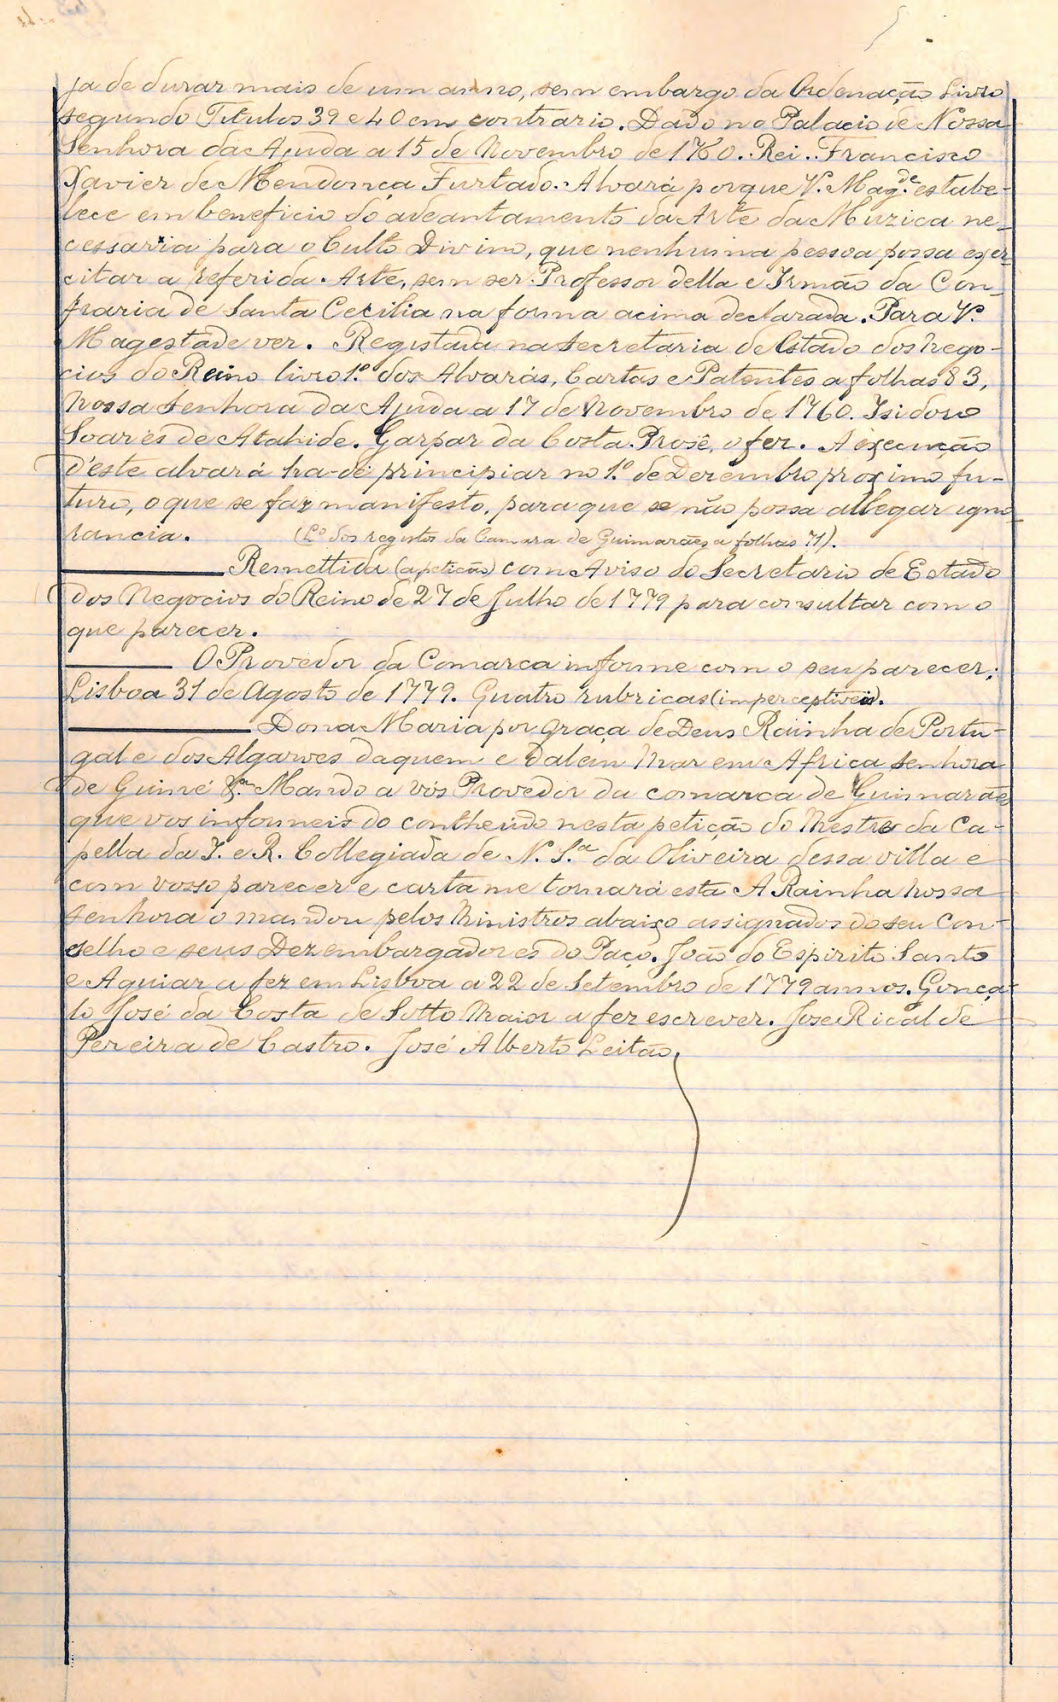 ja de durar mais de um anno, sem embargo da Ordenação Livro
segundo Titulos 39 e 40 em contrario. Dado no Palacio de Nossa
Senhora da Ajuda a 15 de Novembro de 1760. Rei. Francisco
Xavier de Mendonça Furtado. Alvará porque V. Mag.de estabe-
lece em beneficio do adeantamento da Arte da Muzica ne-
cessaria para o Culto Divino, que nenhuma pessoa possa exer-
citar a referida Arte, sem ser Professor della e Irmão da Con-
fraria de Santa Cecilia na forma acima declarada. Para V.
Magestade ver. Registada na Secretaria de Estado dos Nego-
cios do Reino livro 1.º dos Alvarás, Cartas e Patentes a folhas 83,
Nossa Senhora da Ajuda a 17 de Novembro de 1760. Isidoro
Soares de Atahide. Gaspar da Costa Prosê, o fez. A execução
d'este alvará ha-de principiar no 1.º de Dezembro proximo fu-
turo, o que se faz manifesto, para que se não possa allegar igno
rancia. (L.º dos registos da Camara de Guimarães a folhas 71).
Remettida (a petição) com Aviso do Secretario de Estado
dos Negocios do Reino de 27 de Julho de 1779 para consultar com o
que parecer.
O Provedor da Comarca informe com o seu parecer.
Lisboa 31 de Agosto de 1779. Quatro rubricas (imperceptiveis).
Dona Maria por Graça de Deus Rainha de Portu-
gal e dos Algarves daquem e dalem Mar em Africa Senhora
de Guiné &.ª Mando a vós Provedor da comarca de Guimarães
que vos informeis do contheúdo nesta petição do Mestre da Ca-
pella da I. e R. Collegiada de N. S.ª da Oliveira dessa villa e
com vosso parecer e carta me tornará esta A Rainha Nossa
Senhora o mandou pelos Ministros abaixo assignados do seu Con-
selho e seus Dezembargadores do Paço. João do Espirito Santo
e Aguiar a fez em Lisboa a 22 de Setembro de 1779 annos. Gonça-
lo José da Costa de Sotto Maior a fez escrever. José Rical de
Pereira de Castro. José Alberto Leitão.